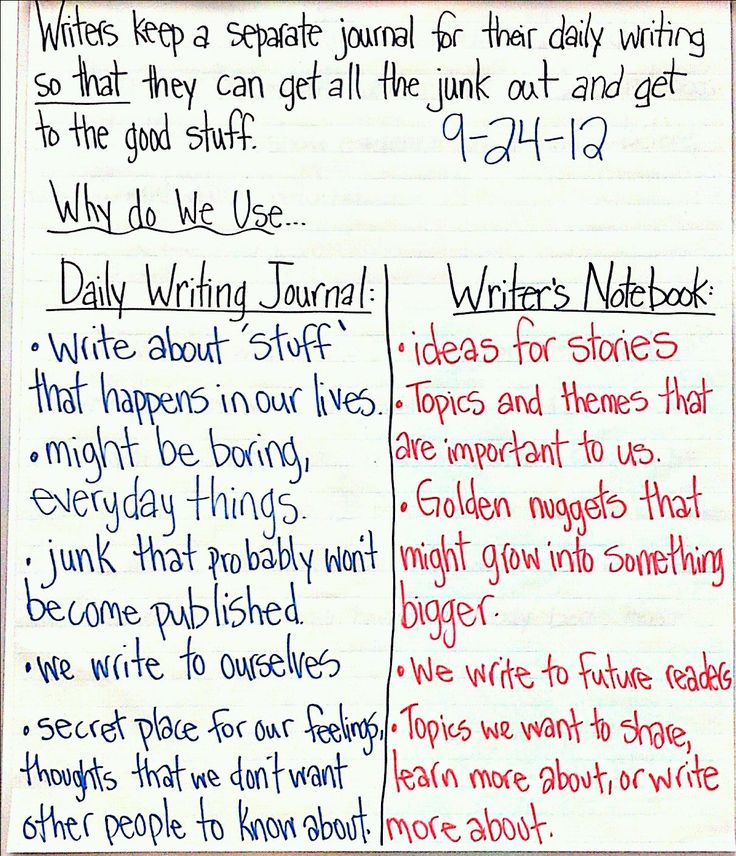 Writers keep a separate journal for their daily writing
so that they can get all the junk out and get
to the good stuff. 9-24-12
Why do We Use...
Daily Writing Journal:
• Write about 'stuff'
that happens in our lives.
• might be boring,
everyday things.
• junk that probably won't
become published.
• we write to ourselves
• secret place for our feelings,
thoughts that we don't want
other people to know about.
Writer's Notebook:
• ideas for stories
• Topics and themes that
are important to us.
• Golden nuggets that
might grow into something
bigger.
• We write to future readers
• Topics we want to share,
learn more about, or write
more about.